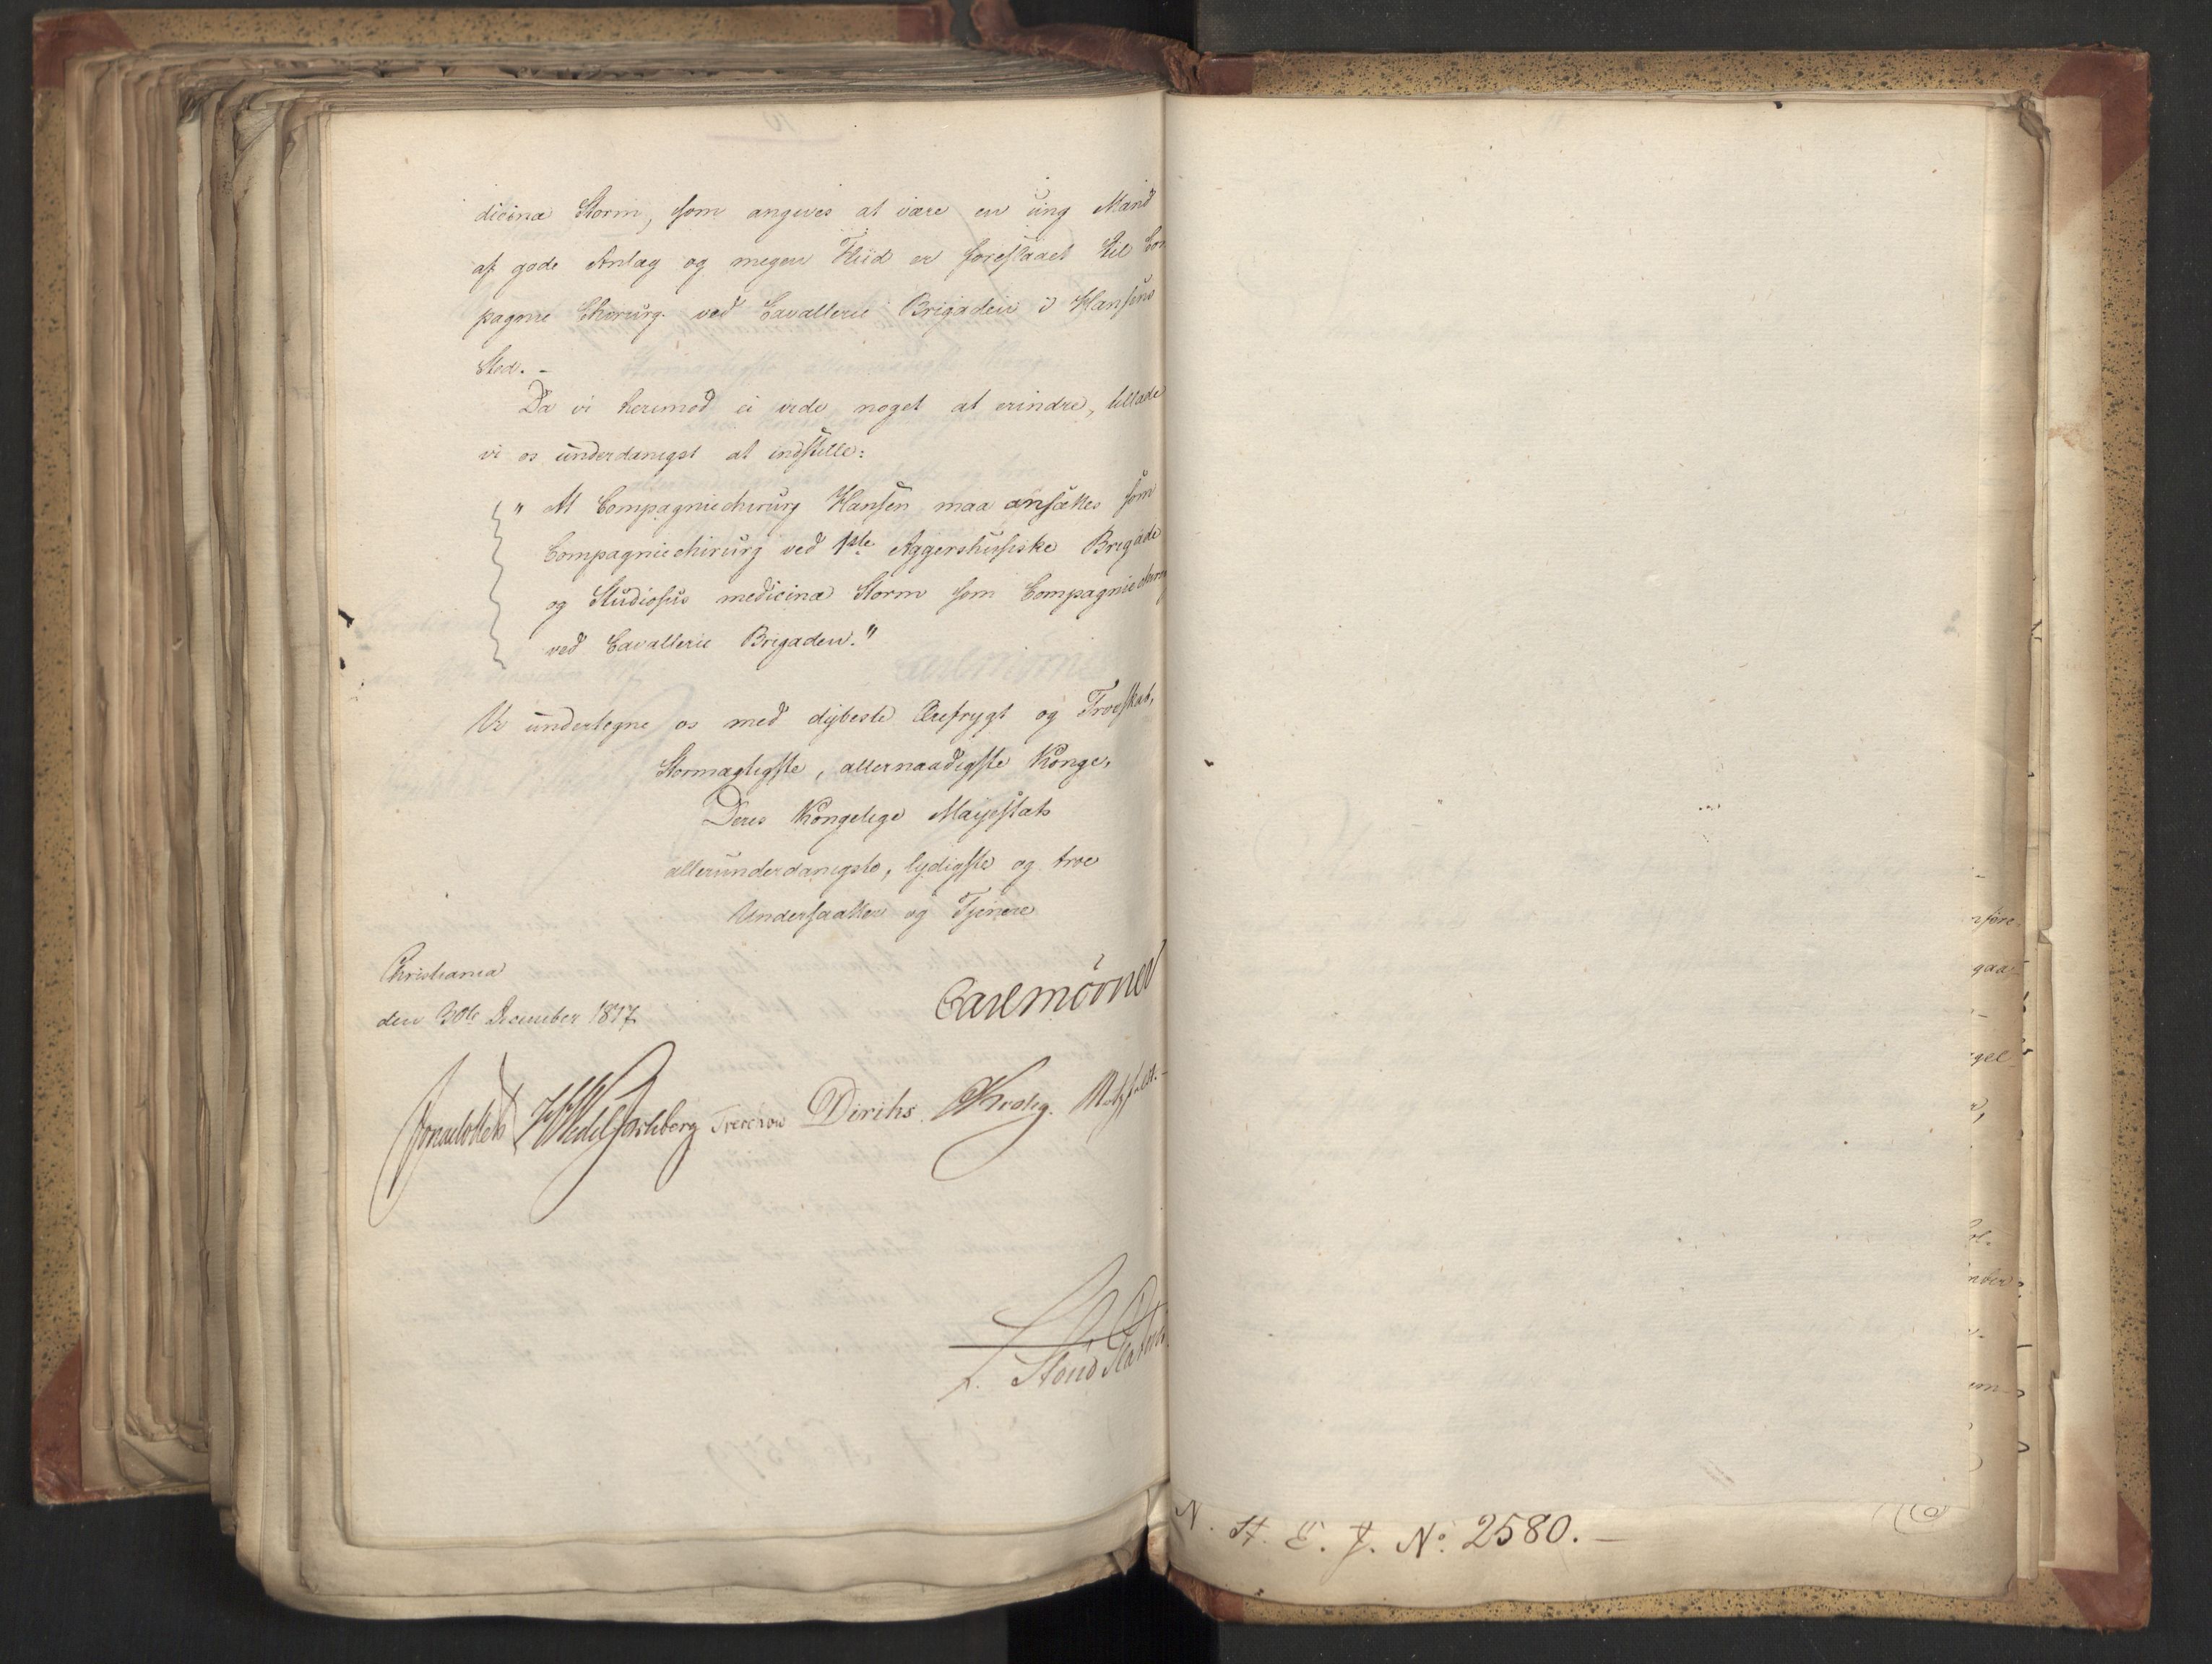 10
dicinæ Storm, som angives at være en ung Mand
af gode Anlæg og megen Fliid er foreslaaet til Com
pagnie Chirurg ved Cavallerie Brigaden i Hansens
Sted. -
Da vi herimod ei vide noget at erindre, tillade
vi os underdanigst at indstille:
" At Compagniechirurg Hansen maa ansættes som
Compagniechirurg ved 1ste Aggershusiske Brigade
og Studiosus medicinæ Storm som Compagniechirurg
ved Cavallerie Brigaden."
Vi undertegne os med dybeste Ærefrygt og Troeskab,
Stormægtigste, allernaadigste Konge,
Deres Kongelige Majestæts
allerunderdanigste, lydigste og troe
Undersaatter og Tjenere
Christiania
den 30te December 1817.
Carl Mörner
Jonas Collett HWedel Jarlsberg Treschow Diriks Krohg. Motzfeldt.-
N. St. E. J. No: 2580. -